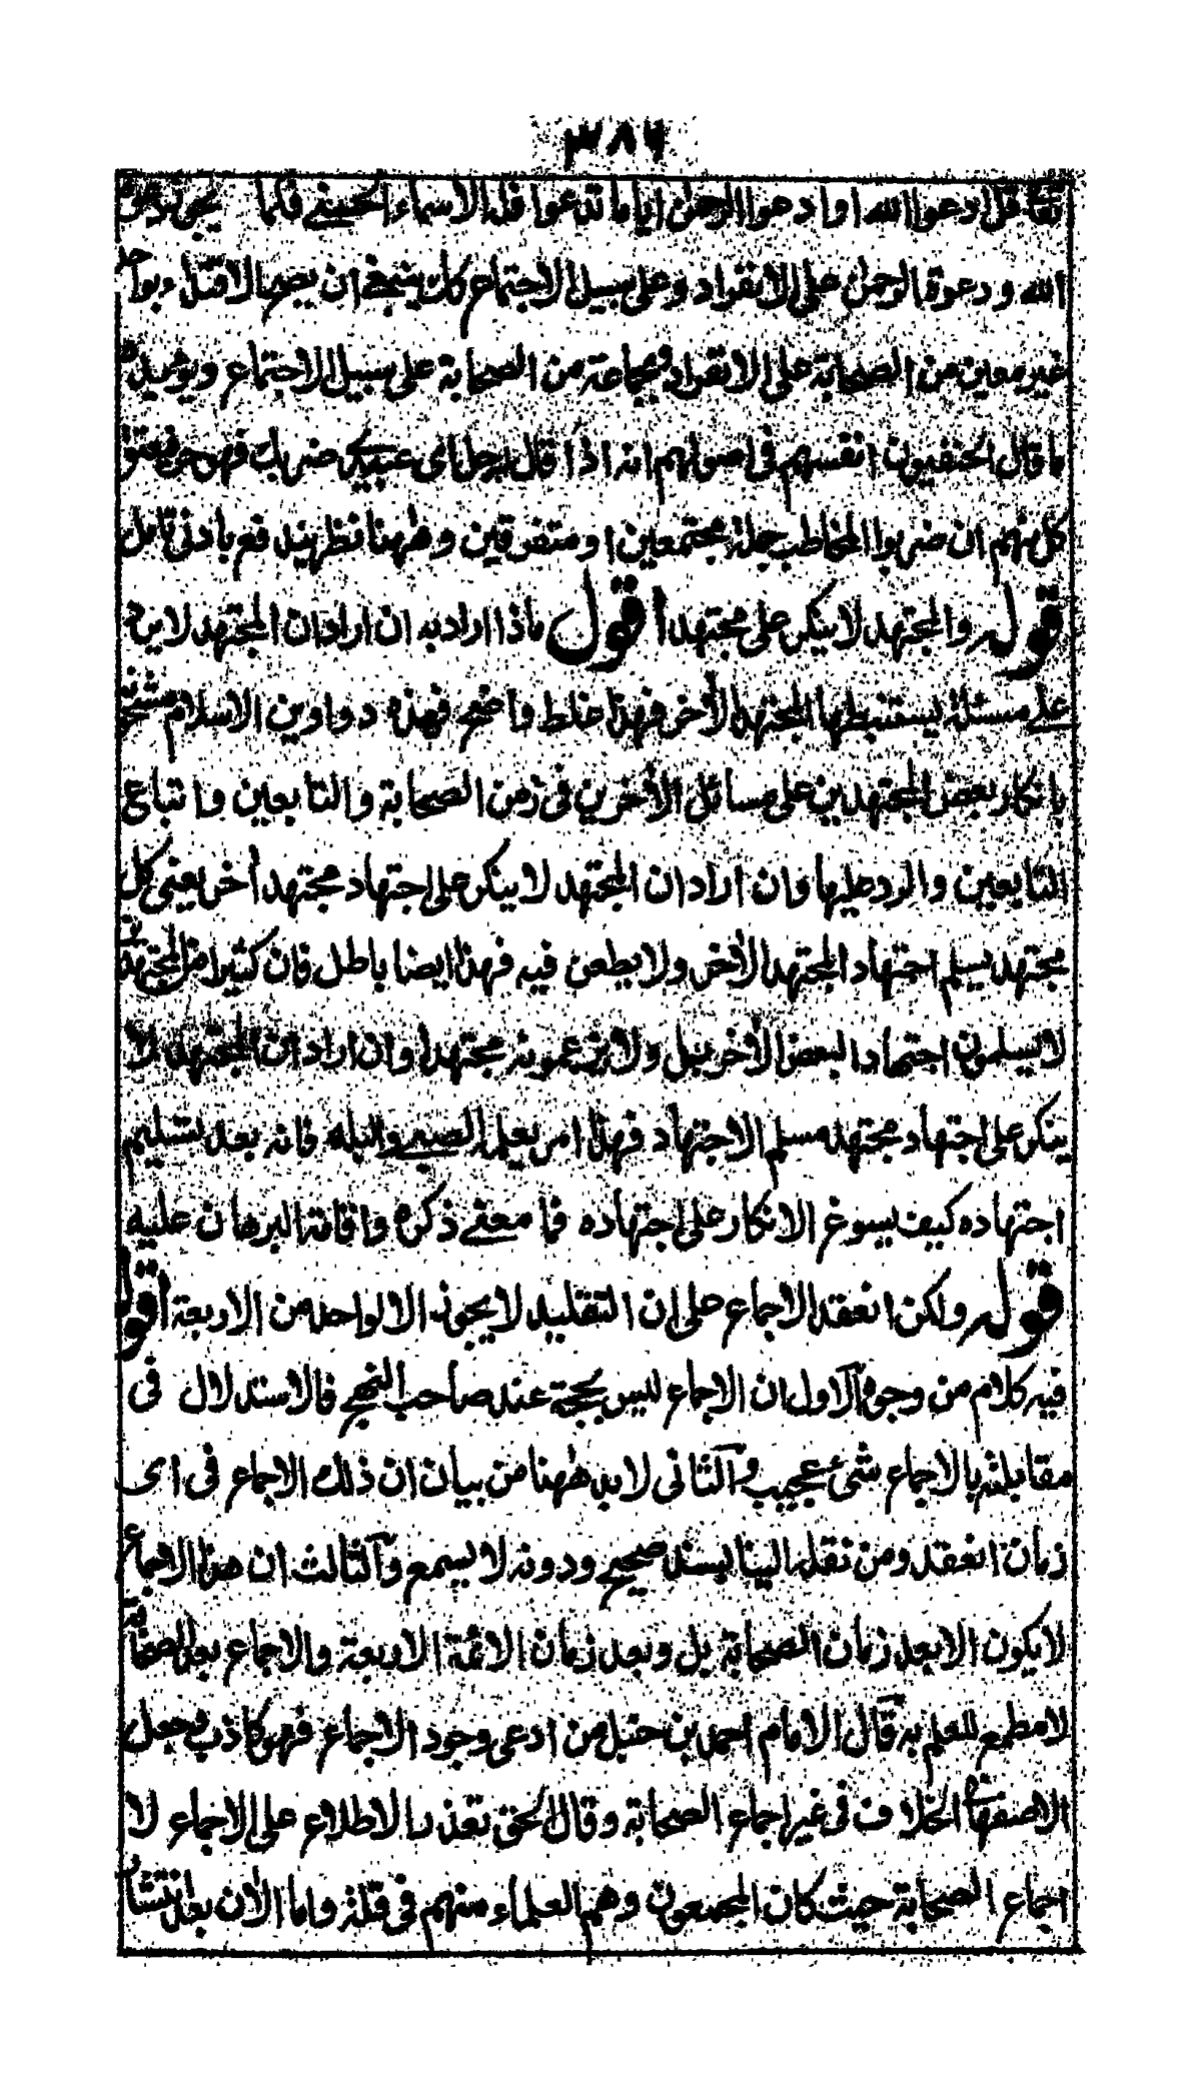 ٣٨٦
تعا قل ادعوا الله او ادعوا الرحمن اياما تدعوا فله الاسماء الحسنے فكما يجوز دعوة
الله ودعوة الرحمن على الانفراد وعلى سبيل الاجتماع كك ينبغے ان يجوز الاقتداء بواحد
غير معين من الصحابة على الانفراد وبجماعة من الصحابة على سبيل الاجتماع ويؤيده
ما قال الحنفيون انفسهم فى اصولهم انه اذا قال رجل اى عبيدى ضربك فهو حر فيعتق
كل منهم ان ضربوا المخاطب جملة مجتمعين او متفرقين وههنا نظر يندفع بادنى تامل
قوله والمجتهد لا ينكر على مجتهد اقول ماذا اراد به ان اراد ان المجتهد لا يرد
على مسئلة يستنبطها المجتهد الأخر فهذا غلط واضح فهذه دواوين الاسلام مشحونة
بانكار بعض المجتهدين على مسائل الأخرين فى زمن الصحابة والتابعين واتباع
التابعين والرد عليها وان اراد ان المجتهد لا ينكر على اجتهاد مجتهد أخر يعنى كل
مجتهد يسلم اجتهاد المجتهد الأخر ولا يطعن فيه فهذا ايضا باطل فان كثيرا من المجتهدين
لا يسلمون اجتهاد البعض الأخر بل ولا يزعمونه مجتهدا وان اراد ان المجتهد لا
ينكر على اجتهاد مجتهد مسلم الاجتهاد فهذا امر يعلمه الصبے والبله فانه بعد تسليم
اجتهاده كيف يسوغ الانكار على اجتهاده فما معنے ذكره واقامة البرهان عليه
قوله ولكن انعقد الاجماع على ان التقليد لا يجوز الا لواحد من الاربعة اقول
فيه كلام من وجوه الاول ان الاجماع ليس بحجة عند صاحب النهج فالاستدلال فى
مقابلته بالاجماع شئ عجيب والثانى لابد ههنا من بيان ان ذلك الاجماع فى اى
زمان انعقد ومن نقله الينا بسند صحيح ودونه لا يسمع والثالث ان هذا الاجماع
لا يكون الا بعد زمان الصحابة بل وبعد زمان الائمة الاربعة والاجماع بعد الصحابة
لا مطمع للعلم به قال الامام احمد بن حنبل من ادعى وجود الاجماع فهو كاذب وجعل
الاصفهانى الخلاف فى غير اجماع الصحابة وقال الحق تعذر الاطلاع على الاجماع لا
اجماع الصحابة حيث كان المجمعون وهم العلماء منهم فى قلة واما الأن بعد انتشار